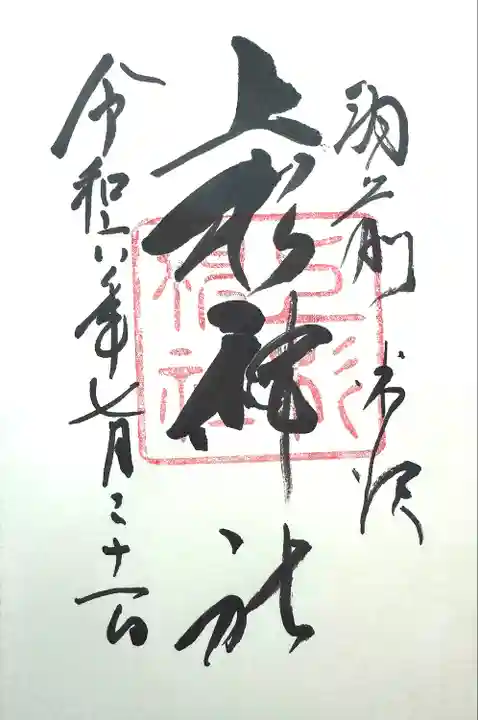 羽前
米沢
上杉神社
上杉神社
令和六年七月三十一日